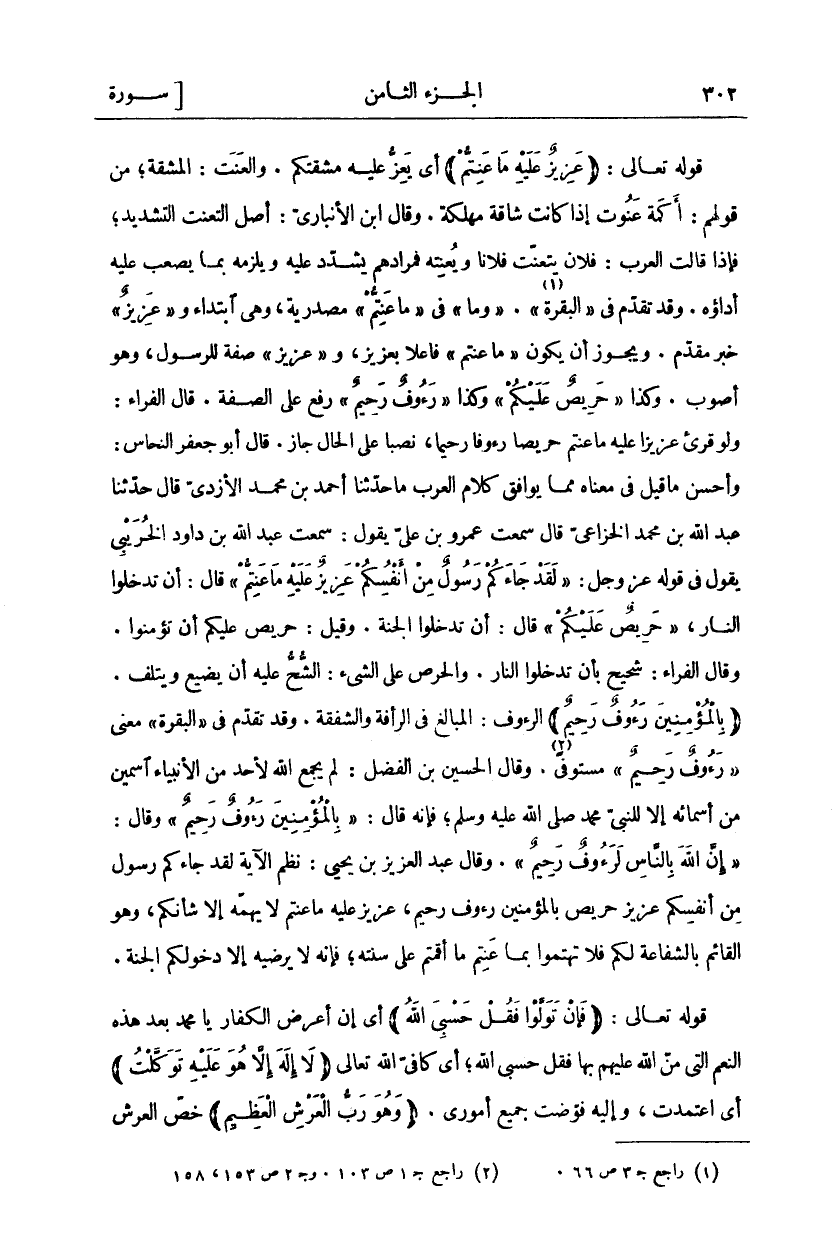 ٣٠٢ الجـــزء الثــامن [ ســـورة
قوله تعـالى : ﴿ عَزِيزٌ عَلَيْهِ مَا عَنِتُّمْ ﴾ أى يَعِزّ عليـه مشقتكم . والعَنَت : المشقة؛ من
قولهم : أَكَمة عَنُوت إذا كانت شاقة مهلكة . وقال ابن الأنبارىّ : أصل التعنت التشديد؛
فإذا قالت العرب : فلان يتعنّت فلانا ويُعنِته فمرادهم يشـدّد عليه ويلزمه بمـا يصعب عليه
أداؤه . وقد تقدّم فى « البقرة » (١) . « وما » فى « ما عَنِتُّمْ » مصدرية، وهى ٱبتداء و « عَزِيزٌ »
خبر مقدّم . ويجـوز أن يكون « ما عنتم » فاعلا بعزيز، و « عزيز » صفة للرسـول، وهو
أصوب . وكذا « حَرِيصٌ عَلَيْكُمْ » وكذا « رَءُوفٌ رَحِيمٌ » رفع على الصـفة . قال الفراء :
ولو قرئ عزيزا عليه ما عنتم حريصا رءوفا رحيما، نصبا على الحال جاز . قال أبو جعفر النحاس :
وأحسن ما قيل فى معناه ممـا يوافق كلام العرب ما حدّثنا أحمد بن محمـد الأزدىّ قال حدّثنا
عبد الله بن محمد الخزاعىّ قال سمعت عمرو بن علىّ يقول : سمعت عبد الله بن داود الخُرَيْبِى
يقول فى قوله عز وجل : « لَقَدْ جَاءَكُمْ رَسُولٌ مِنْ أَنْفُسِكُمْ عَزِيزٌ عَلَيْهِ مَا عَنِتُّمْ » قال : أن تدخلوا
النـار، « حَرِيصٌ عَلَيْكُمْ » قال : أن تدخلوا الجنة . وقيل : حريص عليكم أن تؤمنوا .
وقال الفراء : شحيح بأن تدخلوا النار . والحرص على الشىء : الشُّحّ عليه أن يضيع ويتلف .
﴿ بِالْمُؤْمِنِينَ رَءُوفٌ رَحِيمٌ ﴾ الرءوف : المبالغ فى الرأفة والشفقة . وقد تقدّم فى « البقرة » معنى
« رَءُوفٌ رَحِـيمٌ » مستوفًى (٢) . وقال الحسين بن الفضل : لم يجمع الله لأحد من الأنبياء ٱسمين
من أسمائه إلا للنبىّ محمد صلى الله عليه وسلم؛ فإنه قال : « بِالْمُؤْمِنِينَ رَءُوفٌ رَحِيمٌ » وقال :
« إِنَّ اللَّهَ بِالنَّاسِ لَرَءُوفٌ رَحِيمٌ » . وقال عبد العزيز بن يحيى : نظم الآية لقد جاءكم رسول
من أنفسِكم عزيز حريص بالمؤمنين رءوف رحيم، عزيز عليه ما عنتم لا يهمّه إلا شأنكم، وهو
القائم بالشفاعة لكم فلا تهتموا بمـا عَنِتم ما أقمتم على سنته؛ فإنه لا يرضيه إلا دخولكم الجنة .
قوله تعـالى : ﴿ فَإِنْ تَوَلَّوْا فَقُـلْ حَسْبِىَ اللَّهُ ﴾ أى إن أعرض الكفار يا محمد بعد هذه
النعم التى منّ الله عليهم بها فقل حسبى الله؛ أى كافىّ الله تعالى ﴿ لَا إِلَهَ إِلَّا هُوَ عَلَيْهِ تَوَكَّلْتُ ﴾
أى اعتمدت ، وإليه فوّضت جميع أمورى . ﴿ وَهُوَ رَبُّ الْعَرْشِ الْعَظِـيمِ ﴾ خصّ العرش
(١) راجع جـ ٣ ص ٦٦ . (٢) راجع جـ ١ ص ١٠٣ . وجـ ٢ ص ١٥٣، ١٥٨